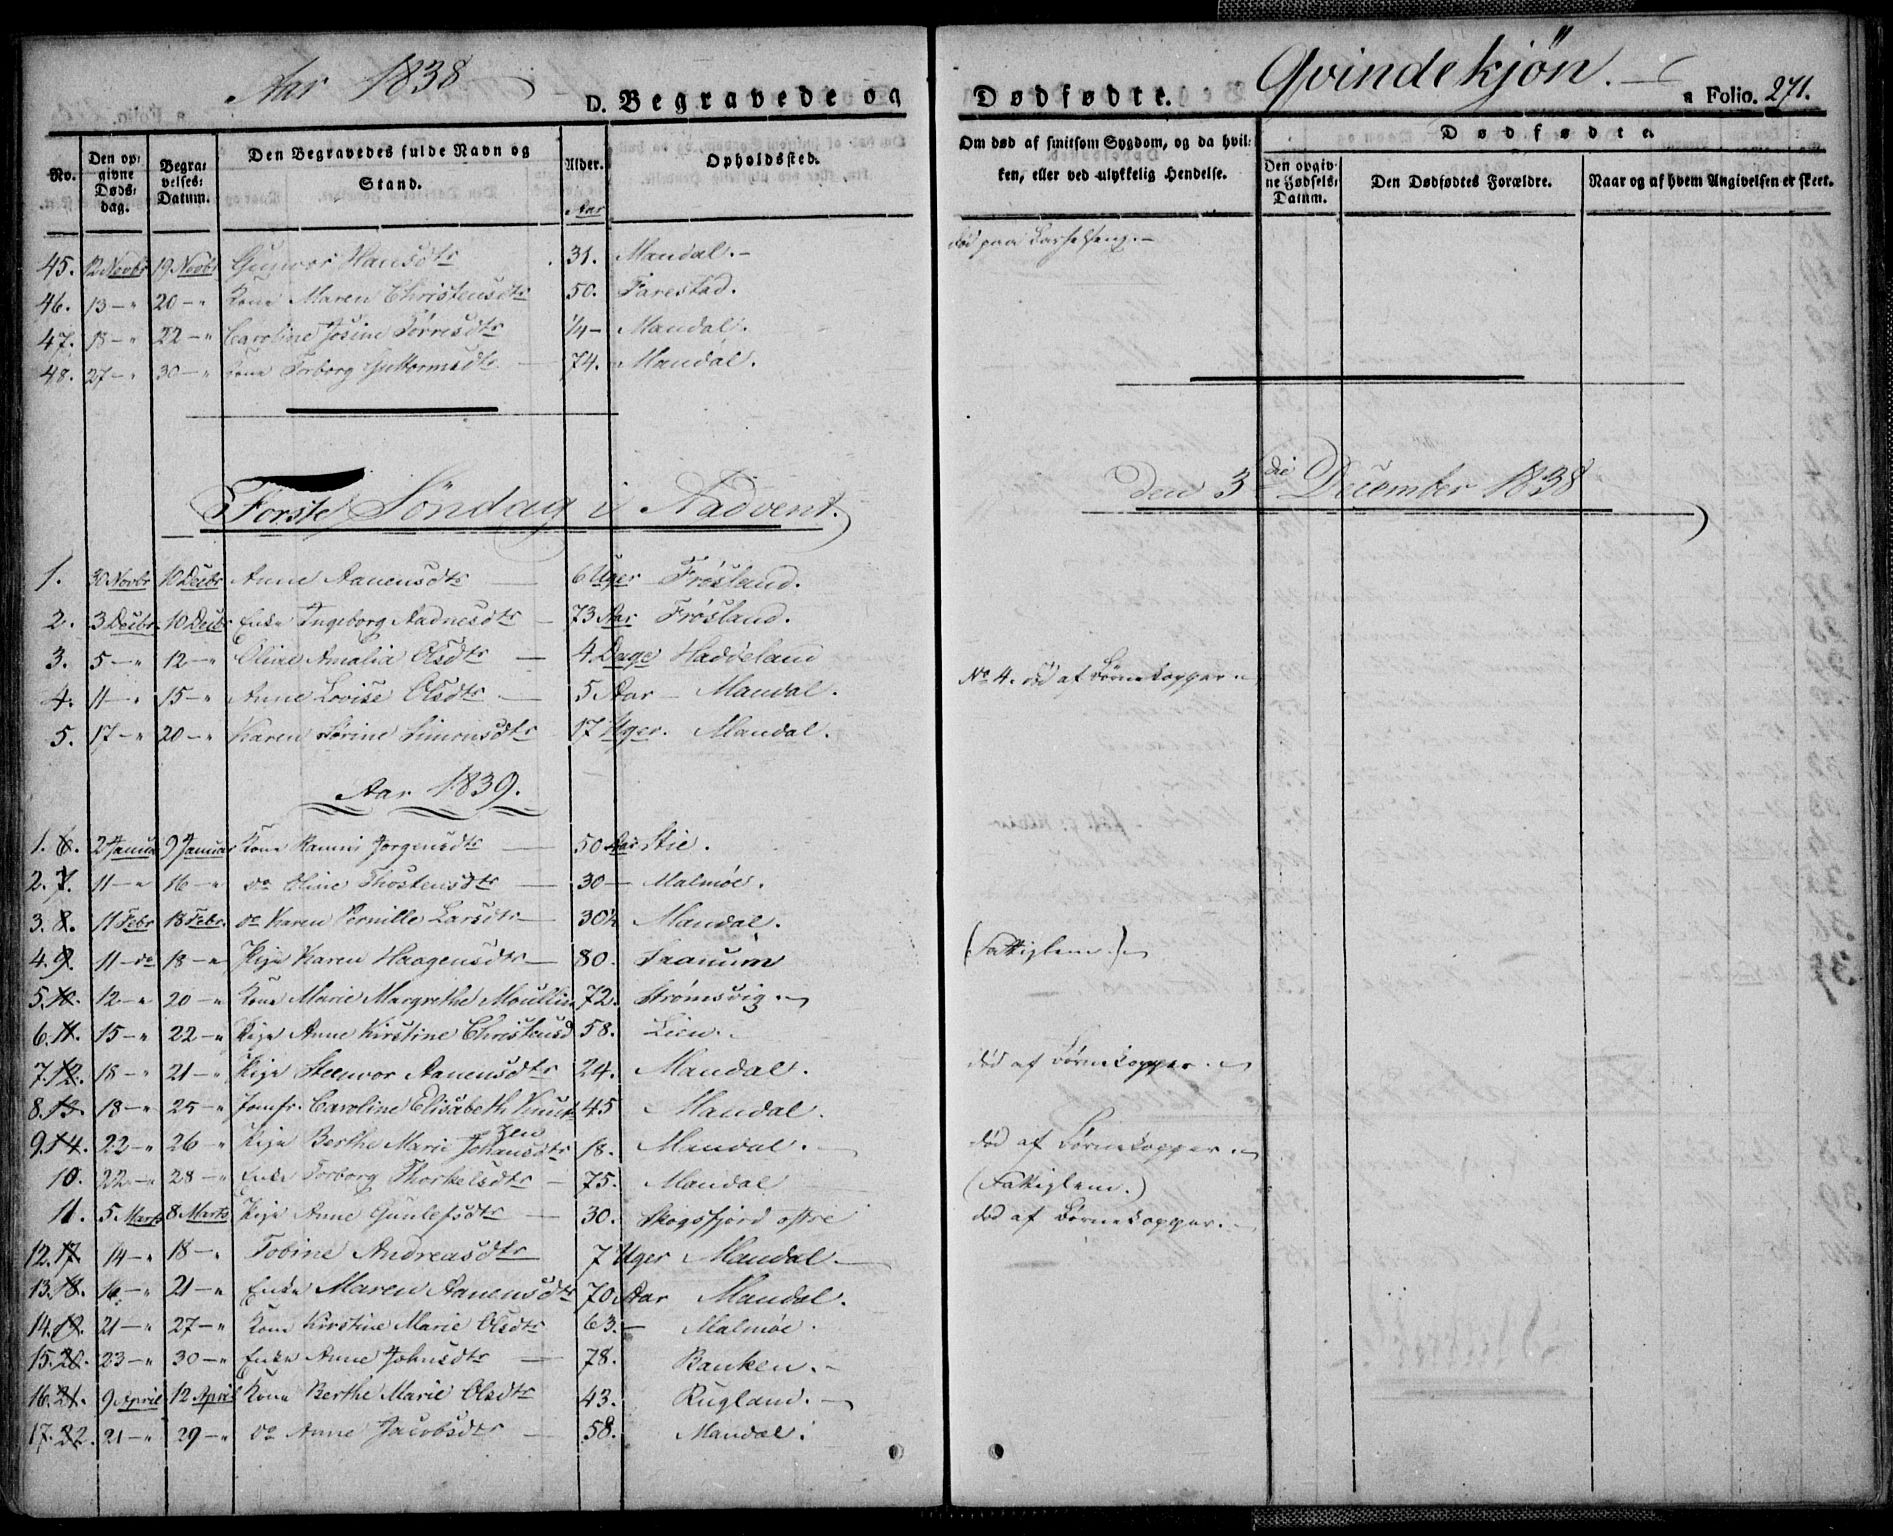 Aar 1838
D. Begravede og
Dødfødte.
Qvindekjön.
Folio. 271.
No.
Den opgivne Dødsdag.
Begravelses-Datum.
Den Begravedes fulde Navn og Stand.
Alder.
Aar
Opholdssted.
Om død af smitsom Sygdom, og da hvilken, eller ved ulykkelig Hendelse.
Dødfødte.
Den opgivne Fødsels-Datum.
Den Dødfødtes Forældre.
Naar og af hvem Angivelsen er skeet.
45. 12 Novbr 19 Novbr Gunvor Hansdtr 31. Mandal. død paa Barselseng.
46. 13 – " 20 – " Kone Maren Christensdtr 50. Farestad.
47. 18 – " 22 – " Caroline Josine Tørresdtr 1/4 – Mandal.
48. 27 – " 30 – " Kone Torborg Guttormsdtr 74. Mandal.
Første Söndag i Aadvent.
den 3die December 1838
1. 30 Novbr 10 Decbr Anne Aanensdtr 6 Uger Frøsland.
2. 3 Decbr 10 Decbr Enke Ingeborg Aadnesdtr 73 Aar Frøsland.
3. 5 – " 12 – " Oline Amalia Olsdtr 4 Dage Haddeland
4. 11 – " 15 – " Anne Lovise Olsdtr 5 Aar – Mandal. No 4. død af Børnekopper.
5. 17 – " 20 – " Karen Sørine Simonsdtr 17 Uger. Mandal.
Aar 1839.
1. 6. 2 Januar 9 Januar Kone Ramni Jørgensdtr 50 Aar Stie.
2. 7. 11 – " 16 – " do Oline Thostensdtr 30 – Malmöe.
3. 8. 11 Febr 18 Febr. do Karen Pernille Larsdtr 30 1/2 Mandal.
4. 9. 11 – do 18 – " Pige Karen Haagensdtr 80. (Fattiglem.)
5. 10. 12 – " 20 – " Kone Marie Margrethe 72. Strømsvig.
6. 11. 15 – " 22 – " Pige Anne Kirstine Christensd 58. Lien.
7. 12. 18 – " 21 – " Pige Steenvor Aanensdtr 24. Mandal. død af Børnekopper.
8. 13. 18 – " 25 – " Jomfr. Caroline Elisabeth Knut 45 Mandal.
zen
9. 14. 22 – " 26 – " Pige Berthe Marie Johansdtr 18. Mandal. død af Børnekopper.
10. 22 – " 28 – " Enke Torborg Thorkelsdtr 75. Mandal (Fattiglem.)
11. 5 Marts 8 Marts Pige Anne Gunlefsdtr 30. Skogsfjord østre død af Børnekopper.
12. 17. 14 – " 18 – " Tobine Andreasdtr 7 Uger Mandal.
13. 18. 16 – " 21 – " Enke Maren Aanensdtr 70 Aar Mandal.
14. 19. 21 – " 27 – " Kone Kirstine Marie Olsdtr 63. – Malmöe.
15. 20. 23 – " 30 – " Enke Anne Johnsdtr 78. Banken.
16. 21. 9 April 12 April Kone Berthe Marie Olsdtr 43. Rugland.
17. 22. 21 – " 29 – " do Anne Jacobsdtr 58. Mandal.